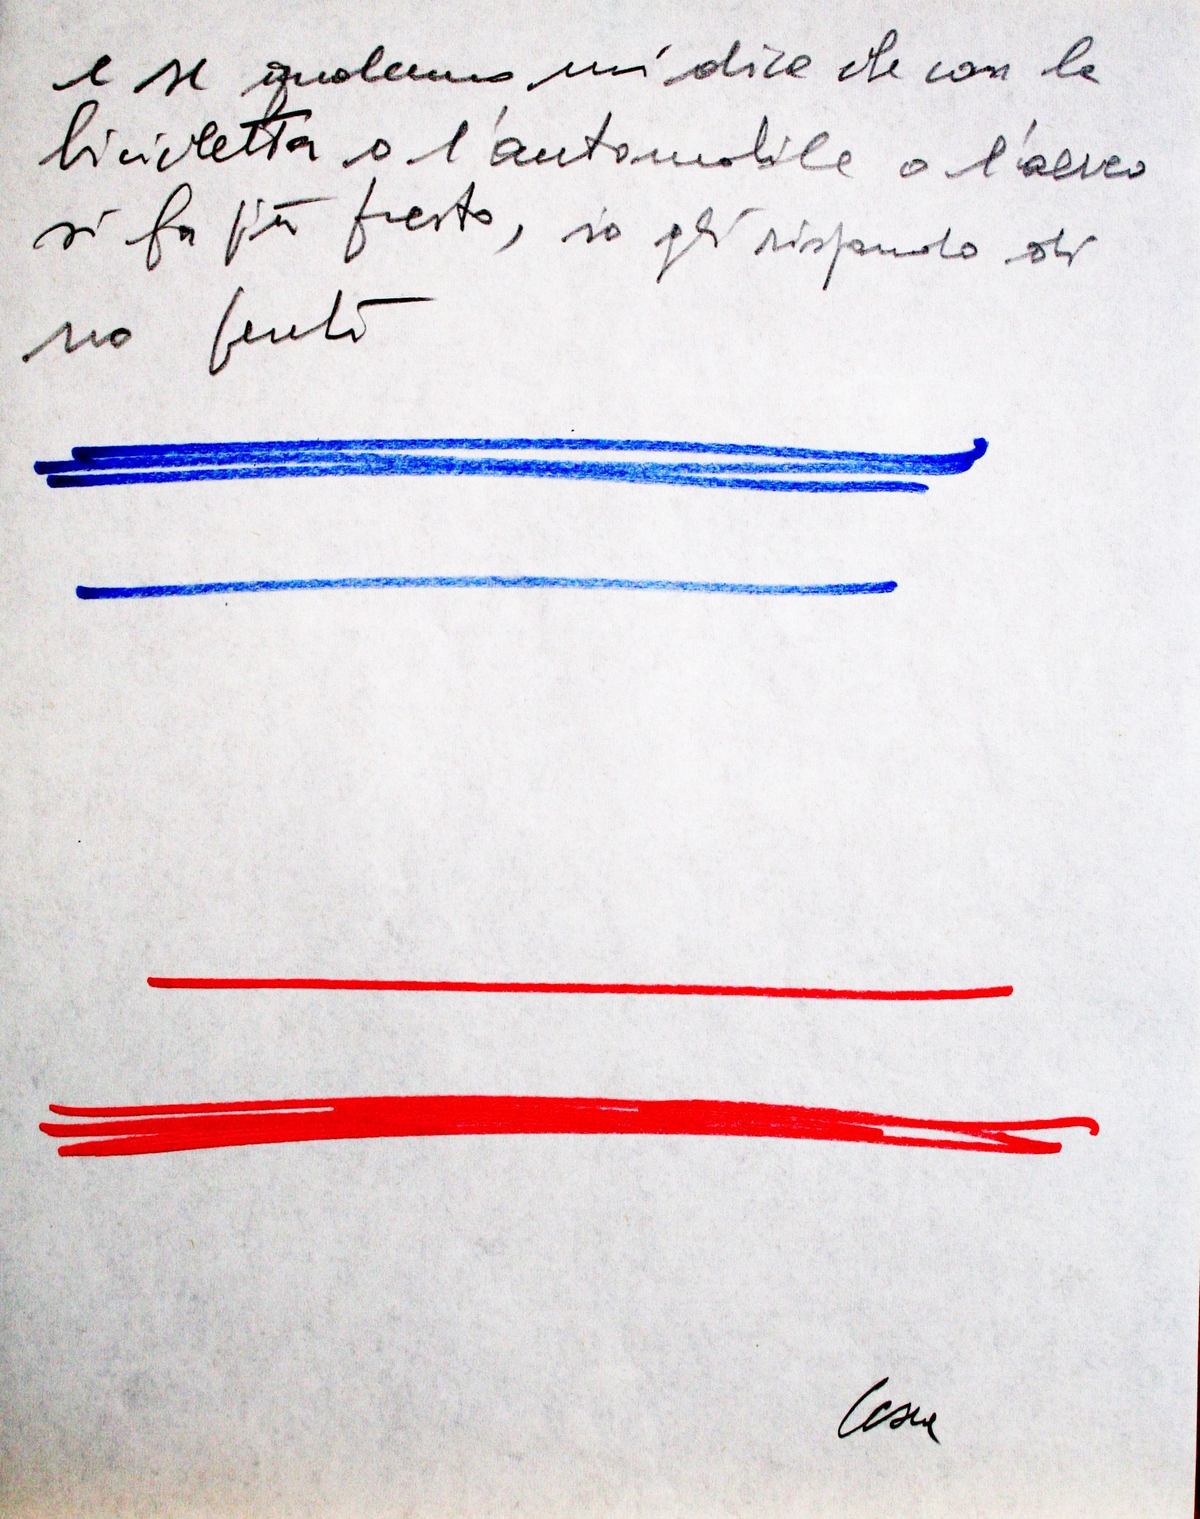 e se qualcuno mi dice che con la
bicicletta o l'automobile o l'aereo
si fa più presto, io gli rispondo di
no perché